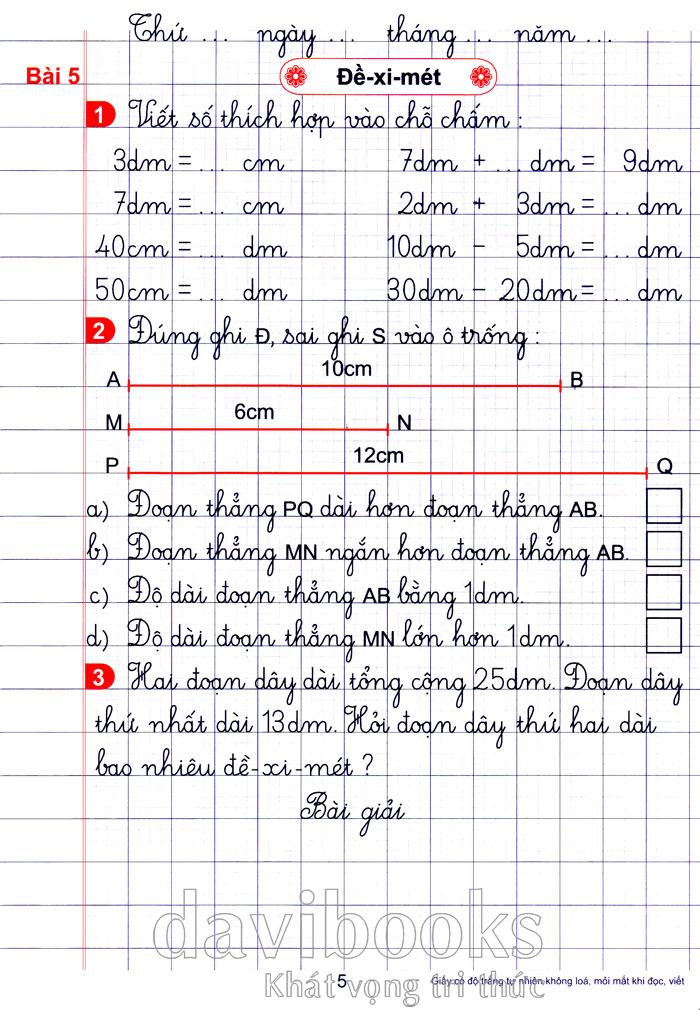 Thứ ... ngày ... tháng ... năm ...
Bài 5 Đề-xi-mét
1 Viết số thích hợp vào chỗ chấm :
3dm = ... cm 7dm + ... dm = 9dm
7dm = ... cm 2dm + 3dm = ... dm
40cm = ... dm 10dm - 5dm = ... dm
50cm = ... dm 30dm - 20dm = ... dm
2 Đúng ghi Đ, sai ghi S vào ô trống :
10cm
A B
6cm
M N
12cm
P Q
a) Đoạn thẳng PQ dài hơn đoạn thẳng AB.
b) Đoạn thẳng MN ngắn hơn đoạn thẳng AB.
c) Độ dài đoạn thẳng AB bằng 1dm.
d) Độ dài đoạn thẳng MN lớn hơn 1dm.
3 Hai đoạn dây dài tổng cộng 25dm. Đoạn dây
thứ nhất dài 13dm. Hỏi đoạn dây thứ hai dài
bao nhiêu đề-xi-mét ?
Bài giải
davibooks
Khát vọng tri thức
5 Giấy có độ trắng tự nhiên không loá, mỏi mắt khi đọc, viết